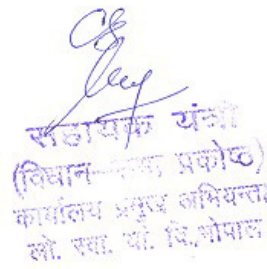 सहायक यंत्री
(विधान सभा प्रकोष्ठ)
कार्यालय प्रमुख अभियन्ता
लो. स्वा. यां. वि. भोपाल